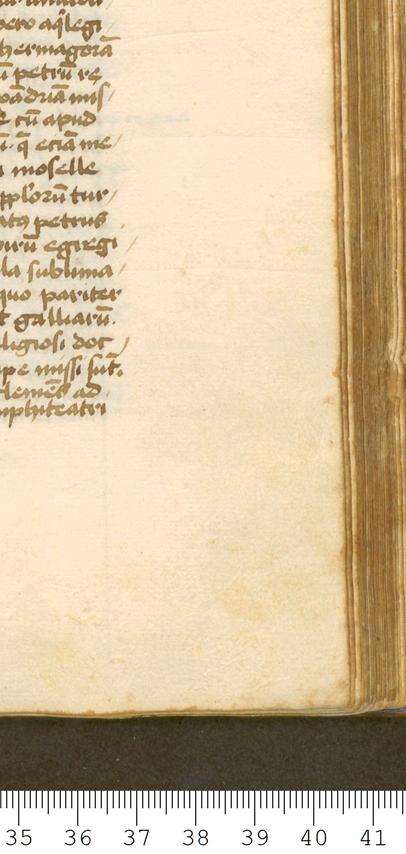 pero aq̃legi
hermagorā
ū petrū re
mis/
cū apud
ū. q̃ eciā me/
moselle
pplorū tur/
petrus
virū egregi/
la sublima/
quo pariter
t galliarū.
ligiosi doc/
pe missi sūt.
clemēs ad
mphiteatri
35 36 37 38 39 40 41